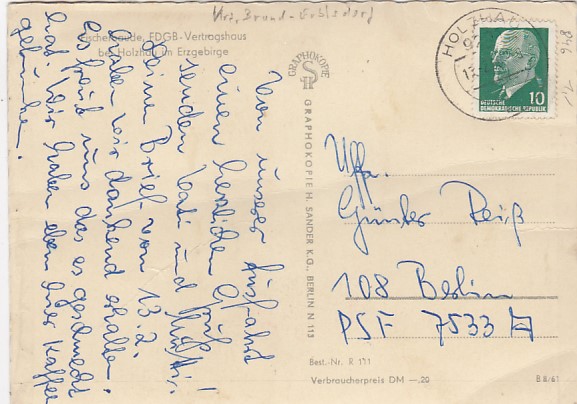 Fischerbaude, FDGB-Vertragshaus
bei Holzhau im Erzgebirge
Von unserer
einen herzlichen Gruß
senden Vati und Mutti!
Deinen Brief vom 13.2.
haben wir dankend erhalten.
es freut uns das es geschmeckt
hat. Wir haben eben hier Kaffee
getrunken.
GRAPHOKOPIE
GRAPHOKOPIE H. SANDER K.G., BERLIN N 113
HOLZHAU
10
DEUTSCHE
DEMOKRATISCHE REPUBLIK
Uffa.
Günter Reiß
108 Berlin
PSF 7533
Best.-Nr. R 171
Verbraucherpreis DM —.20
B 8/61